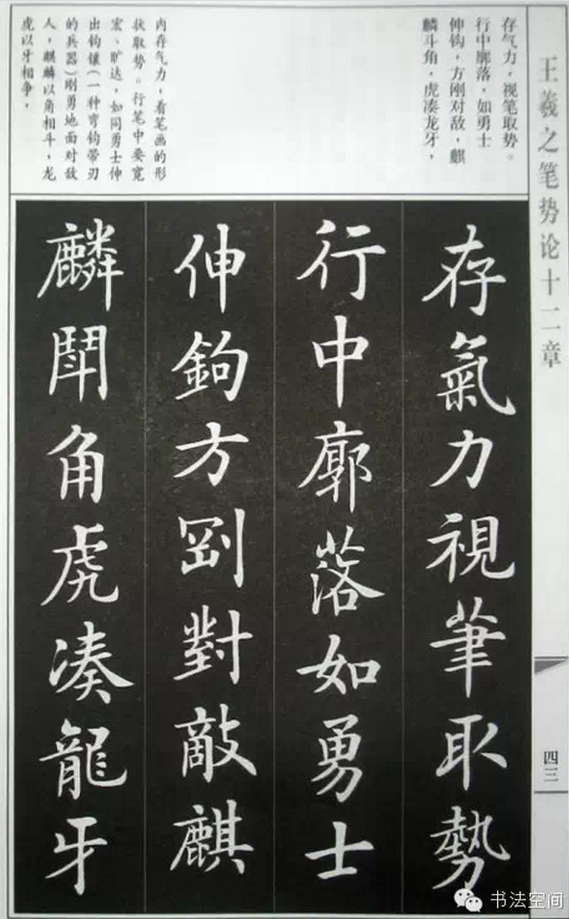 王羲之笔势论十二章
四三
存气力，视笔取势。
行中廓落，如勇士
伸钩，方刚对敌，麒
麟斗角，虎凑龙牙，
内存气力，看笔画的形
状取势。行笔中要宽
宏、旷达，如同勇士伸
出钩镶（一种弯钩带刃
的兵器）刚勇地面对敌
人，麒麟以角相斗，龙
虎以牙相争，
存氣力視筆取勢
行中廓落如勇士
伸鉤方剛對敵麒
麟鬪角虎凑龍牙
书法空间